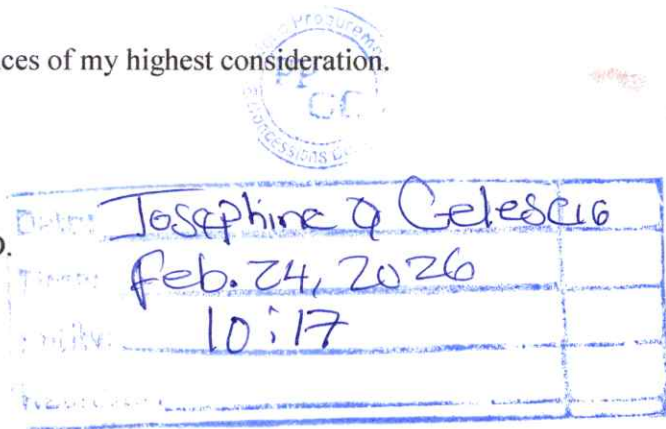 ces of my highest consideration.
Procureme
PP
CC
Concessions C
Date: Josephine Q Celescio
Feb. 24, 2026
10:17